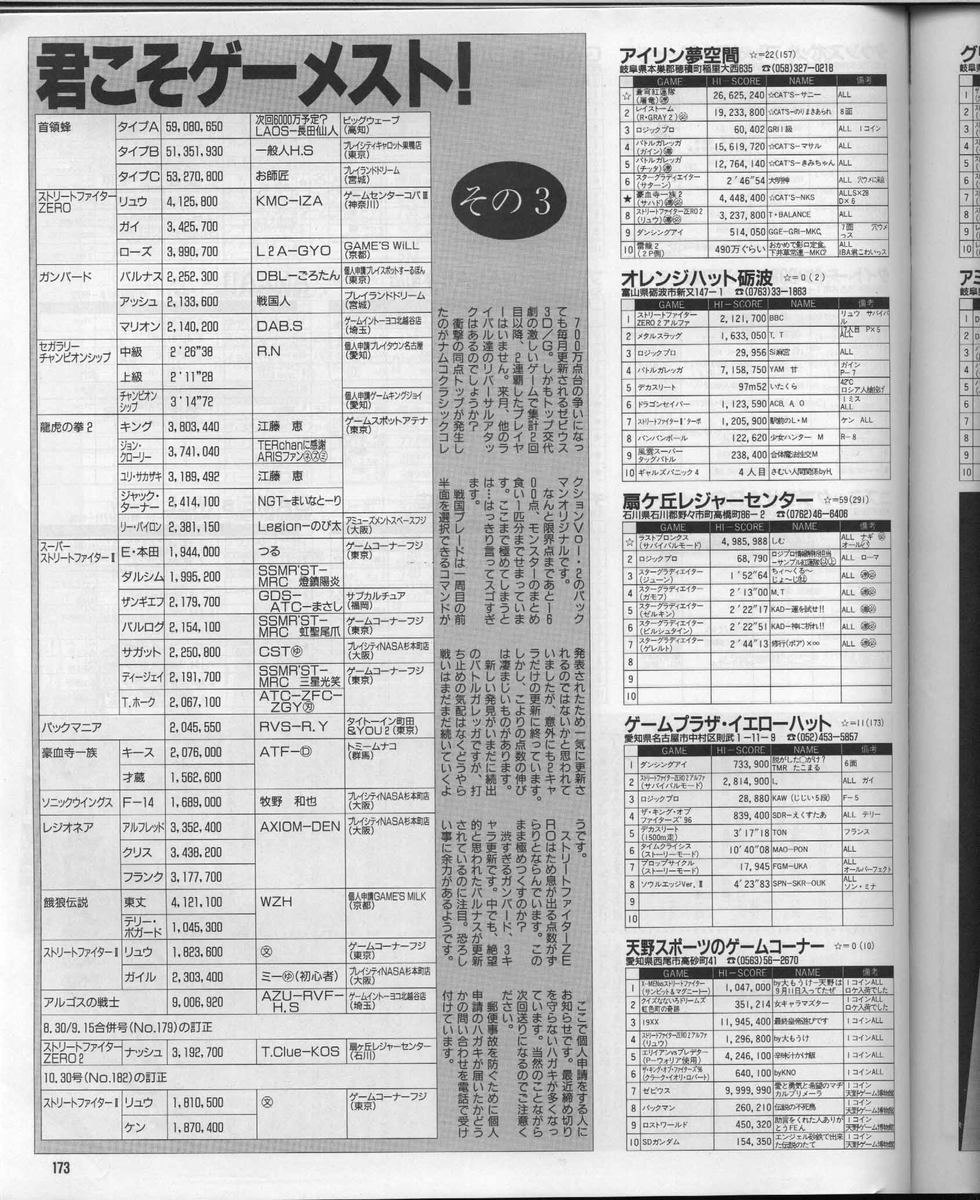 君こそゲーメスト!
その3
首領蜂 タイプA 59,080,650 次回6000万予定? LAOS-長田仙人 ビッグウェーブ(高知)
タイプB 51,351,930 一般人H.S プレイシティキャロット巣鴨店(東京)
タイプC 53,270,800 お師匠 プレイランドドリーム(宮城)
ストリートファイターZERO リュウ 4,125,800 KMC-IZA ゲームセンターコパⅢ(神奈川)
ガイ 3,425,700
ローズ 3,990,700 L2A-GYO GAME'S WiLL(京都)
ガンバード バルナス 2,252,300 DBL-ごろたん 個人申請プレイスポットするぽん(東京)
アッシュ 2,133,600 戦国人 プレイランドドリーム(宮城)
マリオン 2,140,200 DAB.S ゲームイン トーヨコ北越谷店(埼玉)
セガラリーチャンピオンシップ 中級 2'26"38 R.N 個人申請プレイタウン名古屋(愛知)
上級 2'11"28
チャンピオンシップ 3'14"72 個人申請ゲームキングジョイ(愛知)
龍虎の拳2 キング 3,803,440 江藤 恵 ゲームスポットアテナ(東京)
ジョン・クローリー 3,741,040 TERchanに感謝 ARISファン
ユリ・サカザキ 3,189,492 江藤 恵
ジャック・ターナー 2,414,100 NGT-まいなとーり
リー・パイロン 2,381,150 Legion-のび太 アミューズメントスペースフジ(大阪)
スーパーストリートファイターⅡ E・本田 1,944,000 つる ゲームコーナーフジ(東京)
ダルシム 1,995,200 SSMR'ST-MRC 燈鎮陽炎
ザンギエフ 2,179,700 GDS-ATC-まさし サブカルチュア(福岡)
バルログ 2,154,100 SSMR'ST-MRC 虹聖尾爪 ゲームコーナーフジ(東京)
サガット 2,250,800 CSTゆ プレイシティNASA杉本町店(大阪)
ディージェイ 2,191,700 SSMR'ST-MRC 三星光笑 ゲームコーナーフジ(東京)
T.ホーク 2,067,100 ATC-ZFC-ZGY
パックマニア 2,045,550 RVS-R.Y タイトーイン町田&YOU2(東京)
豪血寺一族 キース 2,076,000 ATF-D トミームナコ(群馬)
才蔵 1,562,600
ソニックウイングス F-14 1,689,000 牧野 和也 プレイシティNASA杉本町店(大阪)
レジオネア アルフレッド 3,352,400 AXIOM-DEN プレイシティNASA杉本町店(大阪)
クリス 3,438,200
フランク 3,177,700
餓狼伝説 東丈 4,121,100 WZH 個人申請GAME'S MILK(京都)
テリー・ボガード 1,045,300
ストリートファイターⅡ リュウ 1,823,600 文 ゲームコーナーフジ(東京)
ガイル 2,303,400 ミーゆ(初心者) プレイシティNASA杉本町店(大阪)
アルゴスの戦士 9,006,920 AZU-RVF-H.S ゲームイン トーヨコ北越谷店(埼玉)
8.30/9.15合併号(No.179)の訂正
ストリートファイターZERO2 ナッシュ 3,192,700 T.Clue-KOS 扇ヶ丘レジャーセンター(石川)
10.30号(No.182)の訂正
ストリートファイターⅡ リュウ 1,810,500 文 ゲームコーナーフジ(東京)
ケン 1,870,400
700万点台の争いになっ
ても毎月更新されるゼビウス
3D/G。しかもトップ交代
劇の激しいゲームで集計2回
目以降、2連覇したプレイヤ
ーはいません。来月、他のラ
イバル達のリバーサルアタッ
クはあるのでしょうか?
衝撃の同点トップが発生し
たのがナムコクラシックコレ
クションVol・2のパック
マンオリジナルです。
なんと限界点まであと16
00点、モンスターのまとめ
食い1匹分までせまっていま
す。ここまで極めてしまうと
は…はっきり言ってスゴすぎ
ます。
戦国ブレードは一周目の前
半面を選択できるコマンドが
発表されたため一気に更新さ
れるのではないかと思われて
いましたが、意外にも2キャ
ラだけの更新に終っています。
しかし、こよりの点数の伸び
は凄まじいものがあります。
新しい発見がいまだに続出
のバトルガレッガですが、打
ち止めの気配はなくどうやら
戦いはまだまだ続いていくよ
うです。
ストリートファイターZE
ROはため息が出る点数がず
らりとならんでいます。この
まま極めつくすのか?
渋すぎるガンバード、3キ
ャラ更新です。中でも、絶望
的と思われたバルナスが更新
されているのに注目。恐ろし
い事に余力があるようです。
ここで個人申請をする人に
お知らせです。最近締め切り
を守らないハガキが多くなっ
ています。当然のことながら
次回送りになるのでご注意く
ださい。
郵便事故を防ぐために個人
申請のハガキが届いたかどう
かの問い合わせを電話で受け
付けています。
アイリン夢空間 ☆=22(157)
岐阜県本巣郡穂積町稲里大西635 ☎(058)327-0218
GAME HI-SCORE NAME 備考
☆ 蒼穹紅蓮隊(屠竜) 26,625,240 ☆CAT'S-サニー ALL
2 レイストーム(R・GRAY2) 19,233,800 ☆CAT'S-のりまきあられ 8面
3 ロジックプロ 60,402 GRI1級 ALL 1コイン
4 バトルガレッガ(ガイン) 15,619,720 ☆CAT'S-マサル ALL
5 バトルガレッガ(チッタ) 12,764,140 ☆CAT'S-きみちゃん ALL
6 スターグラディエイター(サターン) 2'46"54 大明神 ALL 穴ウメに始
★ 豪血寺一族2(サハド) 4,448,400 ☆CAT'S-NKS ALLS×28 D×6
8 ストリートファイターZERO2(リュウ) 3,237,800 T・BALANCE ALL
9 ダンシングアイ 514,050 GGE-GRI-MKC, 7面 穴ウメっス
10 雷龍2(2P側) 490万ぐらい おかめて影口定食、下井草常連-MKC2 ALL IBA君こわいっス
オレンジハット砺波 ☆=0(2)
富山県砺波市新又147-1 ☎(0763)33-1863
GAME HI-SCORE NAME 備考
1 ストリートファイターZERO2アルファ 2,121,700 BBC リュウ サバイバル
2 メタルスラッグ 1,633,050 T,T ALL
3 ロジックプロ 29,956 Si麻宮 ALL
4 バトルガレッガ 7,158,750 YAM 甘 ガイン P-7
5 デカスリート 97m52 いたくら 42℃ ロシア人槍投げ
6 ドラゴンセイバー 1,123,590 ACB,A,O 1ミス ALL
7 ストリートファイターⅡ'ターボ 1,205,900 駅前のL・M ケン ALL
8 パンパンボール 122,620 少女ハンター M R-8
9 風雲スーパータッグバトル 238,400 合体魔法性交M
10 ギャルズパニック4 4人目 さむい人間関係byH,
扇ケ丘レジャーセンター ☆=59(291)
石川県石川郡野々市町高橋町86-2 ☎(0762)46-6406
GAME HI-SCORE NAME 備考
☆ ラストブロンクス(サバイバルモード) 4,985,988 しむ ALL ナギ オールパ
2 ロジックプロ 68,790 ALL ローマ
3 スターグラディエイター(ジューン) 1'52"64 ちぃ~くる~じょ~じ ALL
4 スターグラディエイター(ガモフ) 2'13"00 M,T ALL
5 スターグラディエイター(ゼルキン) 2'22"17 KAD-運を試せ!! ALL
6 スターグラディエイター(ビルシュタイン) 2'22"51 KAD-神に祈れ!! ALL
7 スターグラディエイター(ゲレルト) 2'44"13 修行(ボア)×∞ ALL
8
9
10
ゲームプラザ・イエローハット ☆=11(173)
愛知県名古屋市中村区則武1-11-9 ☎(052)453-5857
GAME HI-SCORE NAME 備考
1 ダンシングアイ 733,900 脱がした○がけ? TMR たこまる 6面
2 ストリートファイターZERO2アルファ(サバイバルモード) 2,814,900 L, ALL ガイ
3 ロジックプロ 28,880 KAW(じじい5段) F-5
4 ザ・キング・オブファイターズ'96 839,400 SDR-えくすたあ ALL テリー
5 デカスリート(1500m走) 3'17"18 TON フランス
6 タイムクライシス(ストーリーモード) 10'40"08 MAO-PON ALL
7 プロップサイクル(ストーリーモード) 17,945 FGM-UKA ALL オールパーフェクト
8 ソウルエッジVer.Ⅱ 4'23"83 SPN-SKR-OUK ALL ソン・ミナ
9
10
天野スポーツのゲームコーナー ☆=0(10)
愛知県西尾市高砂町41 ☎(0563)56-2670
GAME HI-SCORE NAME 備考
1 X-MENvsストリートファイター(サンビット&マグニートー) 1,047,000 by大もうけ-天野は9月11日入ってたぜ 1コインALL ロケ入荷でした
2 クイズなないろドリームズ虹色町の奇跡 351,214 女キャラマスター 1コインALL ロケ入荷でした
3 19XX 11,945,400 最終皇帝遊びです 1コインALL
4 ストリートファイターZERO2(リュウ) 1,296,800 by大もうけ 1コインALL
5 エイリアンvsプレデター(P-ウォリア使用) 4,246,100 辛味汁かけ飯 1コインALL
6 ザ・キング・オブ・ファイターズ'96(クラーク・イオリ・ロバート) 640,100 byKNO 1コインALL
7 ゼビウス 9,999,990 愛と勇気と希望のマヂカルプリメーラ 1コイン 天野ゲーム博物館
8 パックマン 260,210 伝説の不死鳥 1コイン 天野ゲーム博物館
9 ロストワールド 450,320 助言をくれた人ありがとうFEん 1コインALL 天野ゲーム博物館
10 SDガンダム 154,350 エンジェル砂鉄で出来た伝説のたて 1コイン 天野ゲーム博物館
173